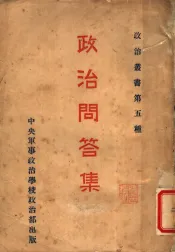 政治叢書第五種
政治問答集
中央軍事政治學校政治部出版